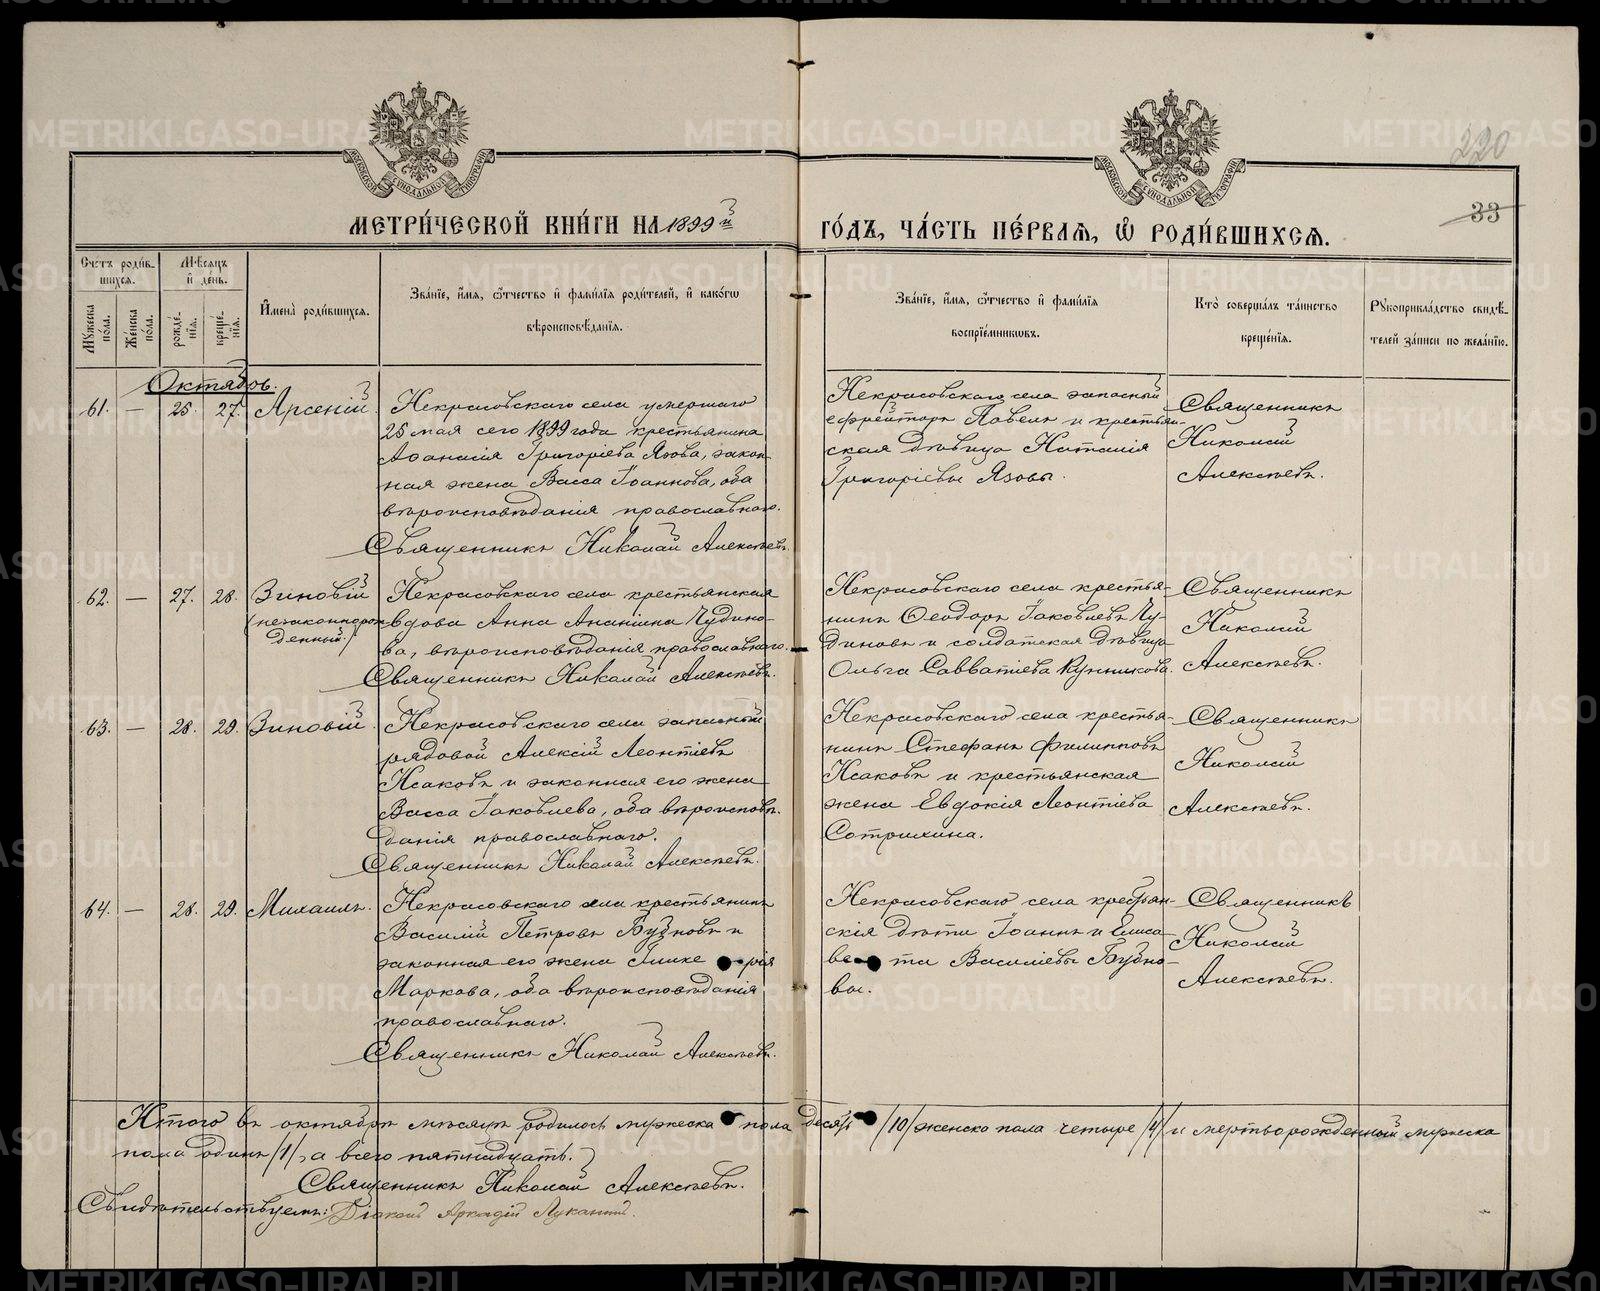 МЕТРИ́ЧЕСКОЙ КНИ́ГИ НА 1899й
ГО́ДЪ, ЧА́СТЬ ПЕ́РВАЯ, Ѡ҆ РОДИ́ВШИХСЯ.
220
33
Счетъ роди́в-
шихся.
Мѣ́сяцъ
и҆ де́нь.
Мꙋжеска
пола.
Женска
пола.
рожде́-
нїя.
креще́-
нїя.
И҆мена̀ роди́вшихся.
Зва́нїе, и҆́мя, ѻ҆́тчество и҆ фами́лїя роди́телей, и҆ како́гѡ
вѣроисповѣ́данїя.
Зва́нїе, и҆́мя, ѻ҆́тчество и҆ фами́лїя
воспрїе́мниковъ.
Кто̀ соверша́лъ та́инство
креще́нїя.
Рꙋкоприкла́дство свидѣ́-
телей за́писи по жела́нїю.
Октябрь.
61. — 25. 27. Арсеній
Некрасовскаго села умершаго
25 мая сего 1899 года крестьянина
Аѳанасія Григоріева Язова, закон-
ная жена Васса Іоаннова, оба
вѣроисповѣданія православнаго.
Священникъ Николай Алексѣевъ.
Некрасовскаго села запасный
ефрейторъ Павелъ и крестьян-
ская дѣвица Наталія
Григоріевы Язовы.
Священникъ
Николай
Алексѣевъ.
62. — 27. 28. Зиновій
(незаконнорож
денный.)
Некрасовскаго села крестьянская
вдова Анна Ананіина Чудино-
ва, вѣроисповѣданія православнаго.
Священникъ Николай Алексѣевъ.
Некрасовскаго села крестья-
нинъ Ѳеодоръ Іаковлевъ Чу-
диновъ и солдатская дѣвица
Ольга Савватіева Кунникова.
Священникъ
Николай
Алексѣевъ.
63. — 28. 29. Зиновій.
Некрасовскаго села запасный
рядовой Алексій Леонтіевъ
Исаковъ и законная его жена
Васса Іаковлева, оба вѣроисповѣ-
данія православнаго.
Священникъ Николай Алексѣевъ.
Некрасовскаго села крестья-
нинъ Стефанъ Филипповъ
Исаковъ и крестьянская
жена Евдокія Леонтіева
Сотрихина.
Священникъ
Николай
Алексѣевъ.
64. — 28. 29. Михаилъ.
Некрасовскаго села крестьянинъ
Василій Петровъ Бубновъ и
законная его жена Гликерія
Маркова, оба вѣроисповѣданія
православнаго.
Священникъ Николай Алексѣевъ.
Некрасовскаго села крестьян-
скія дѣти Іоаннъ и Елиса-
вета Василіевы Бубно-
вы.
Священникъ
Николай
Алексѣевъ.
Итого въ октябрѣ мѣсяцѣ родилось мужеска пола десять /10/ женска пола четыре /4/ и мертворожденный мужеска
пола одинъ /1/, а всего пятнадцать.
Священникъ Николай Алексѣевъ.
Свидѣтельствуемъ: Діаконъ Аркадій Луканинъ.
METRIKI.GASO-URAL.RU